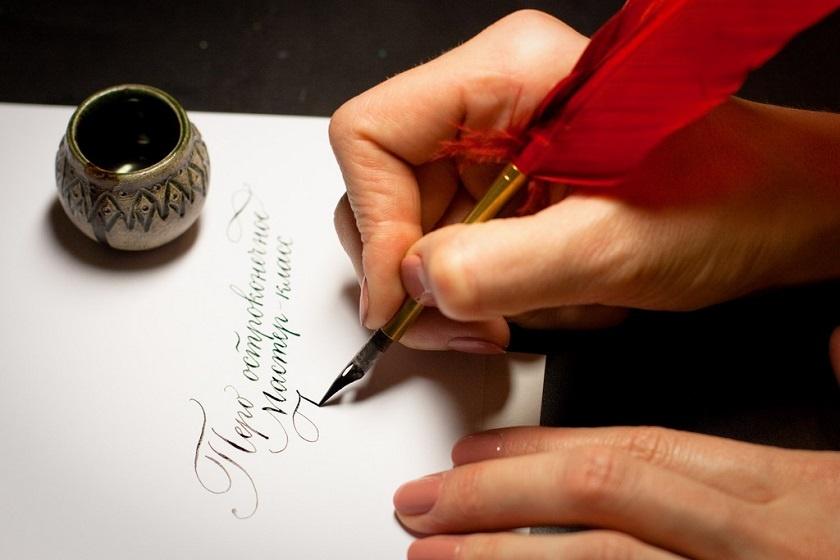 Перо остроконечное
Мастер-класс